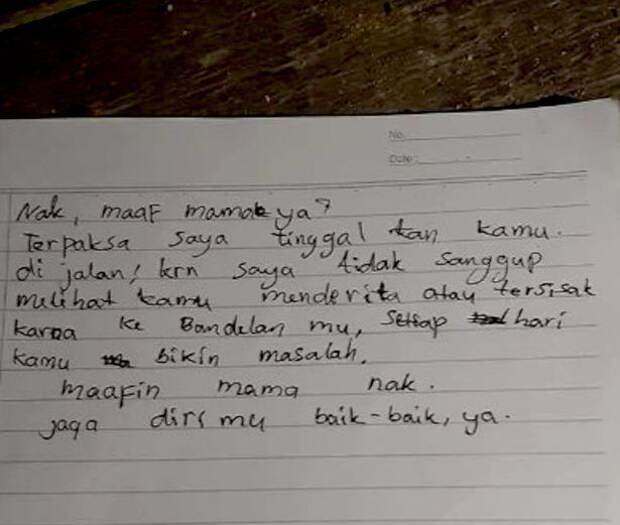 No.
Date:
Nak, maaf mamak ya?
Terpaksa saya tinggal kan kamu.
di jalan, krn saya tidak sanggup
melihat kamu menderita atau tersisak
karna ke Bandelan mu, Setiap hari
kamu bikin masalah.
maafin mama nak.
jaga diri mu baik-baik, ya.